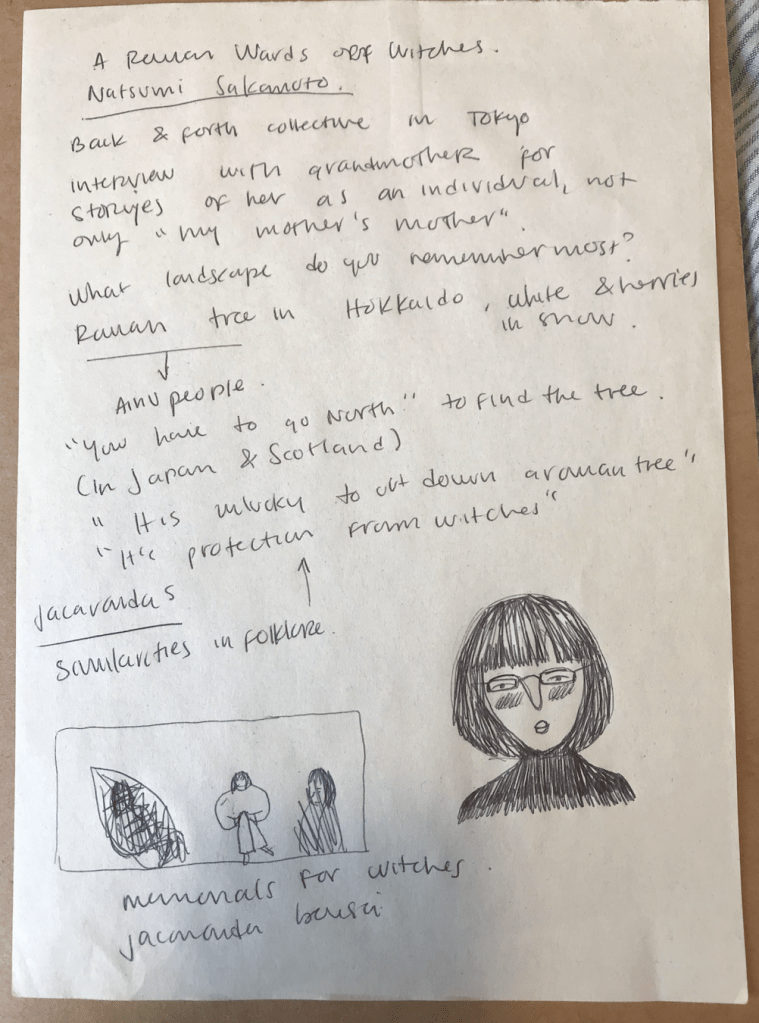 A Rowan Wards off Witches.
Natsumi Sakamoto.
Back & forth collective in Tokyo
interview with grandmother for
stories of her as an individual, not
only "my mother's mother".
what landscape do you remember most?
Rowan tree in Hokkaido, white & berries
in snow.
Ainu people.
"You have to go North" to find the tree.
(in Japan & Scotland)
"It is unlucky to cut down a rowan tree"
"It's protection from witches"
Jacarandas
Similarities in folklore.
memorials for witches.
jacaranda